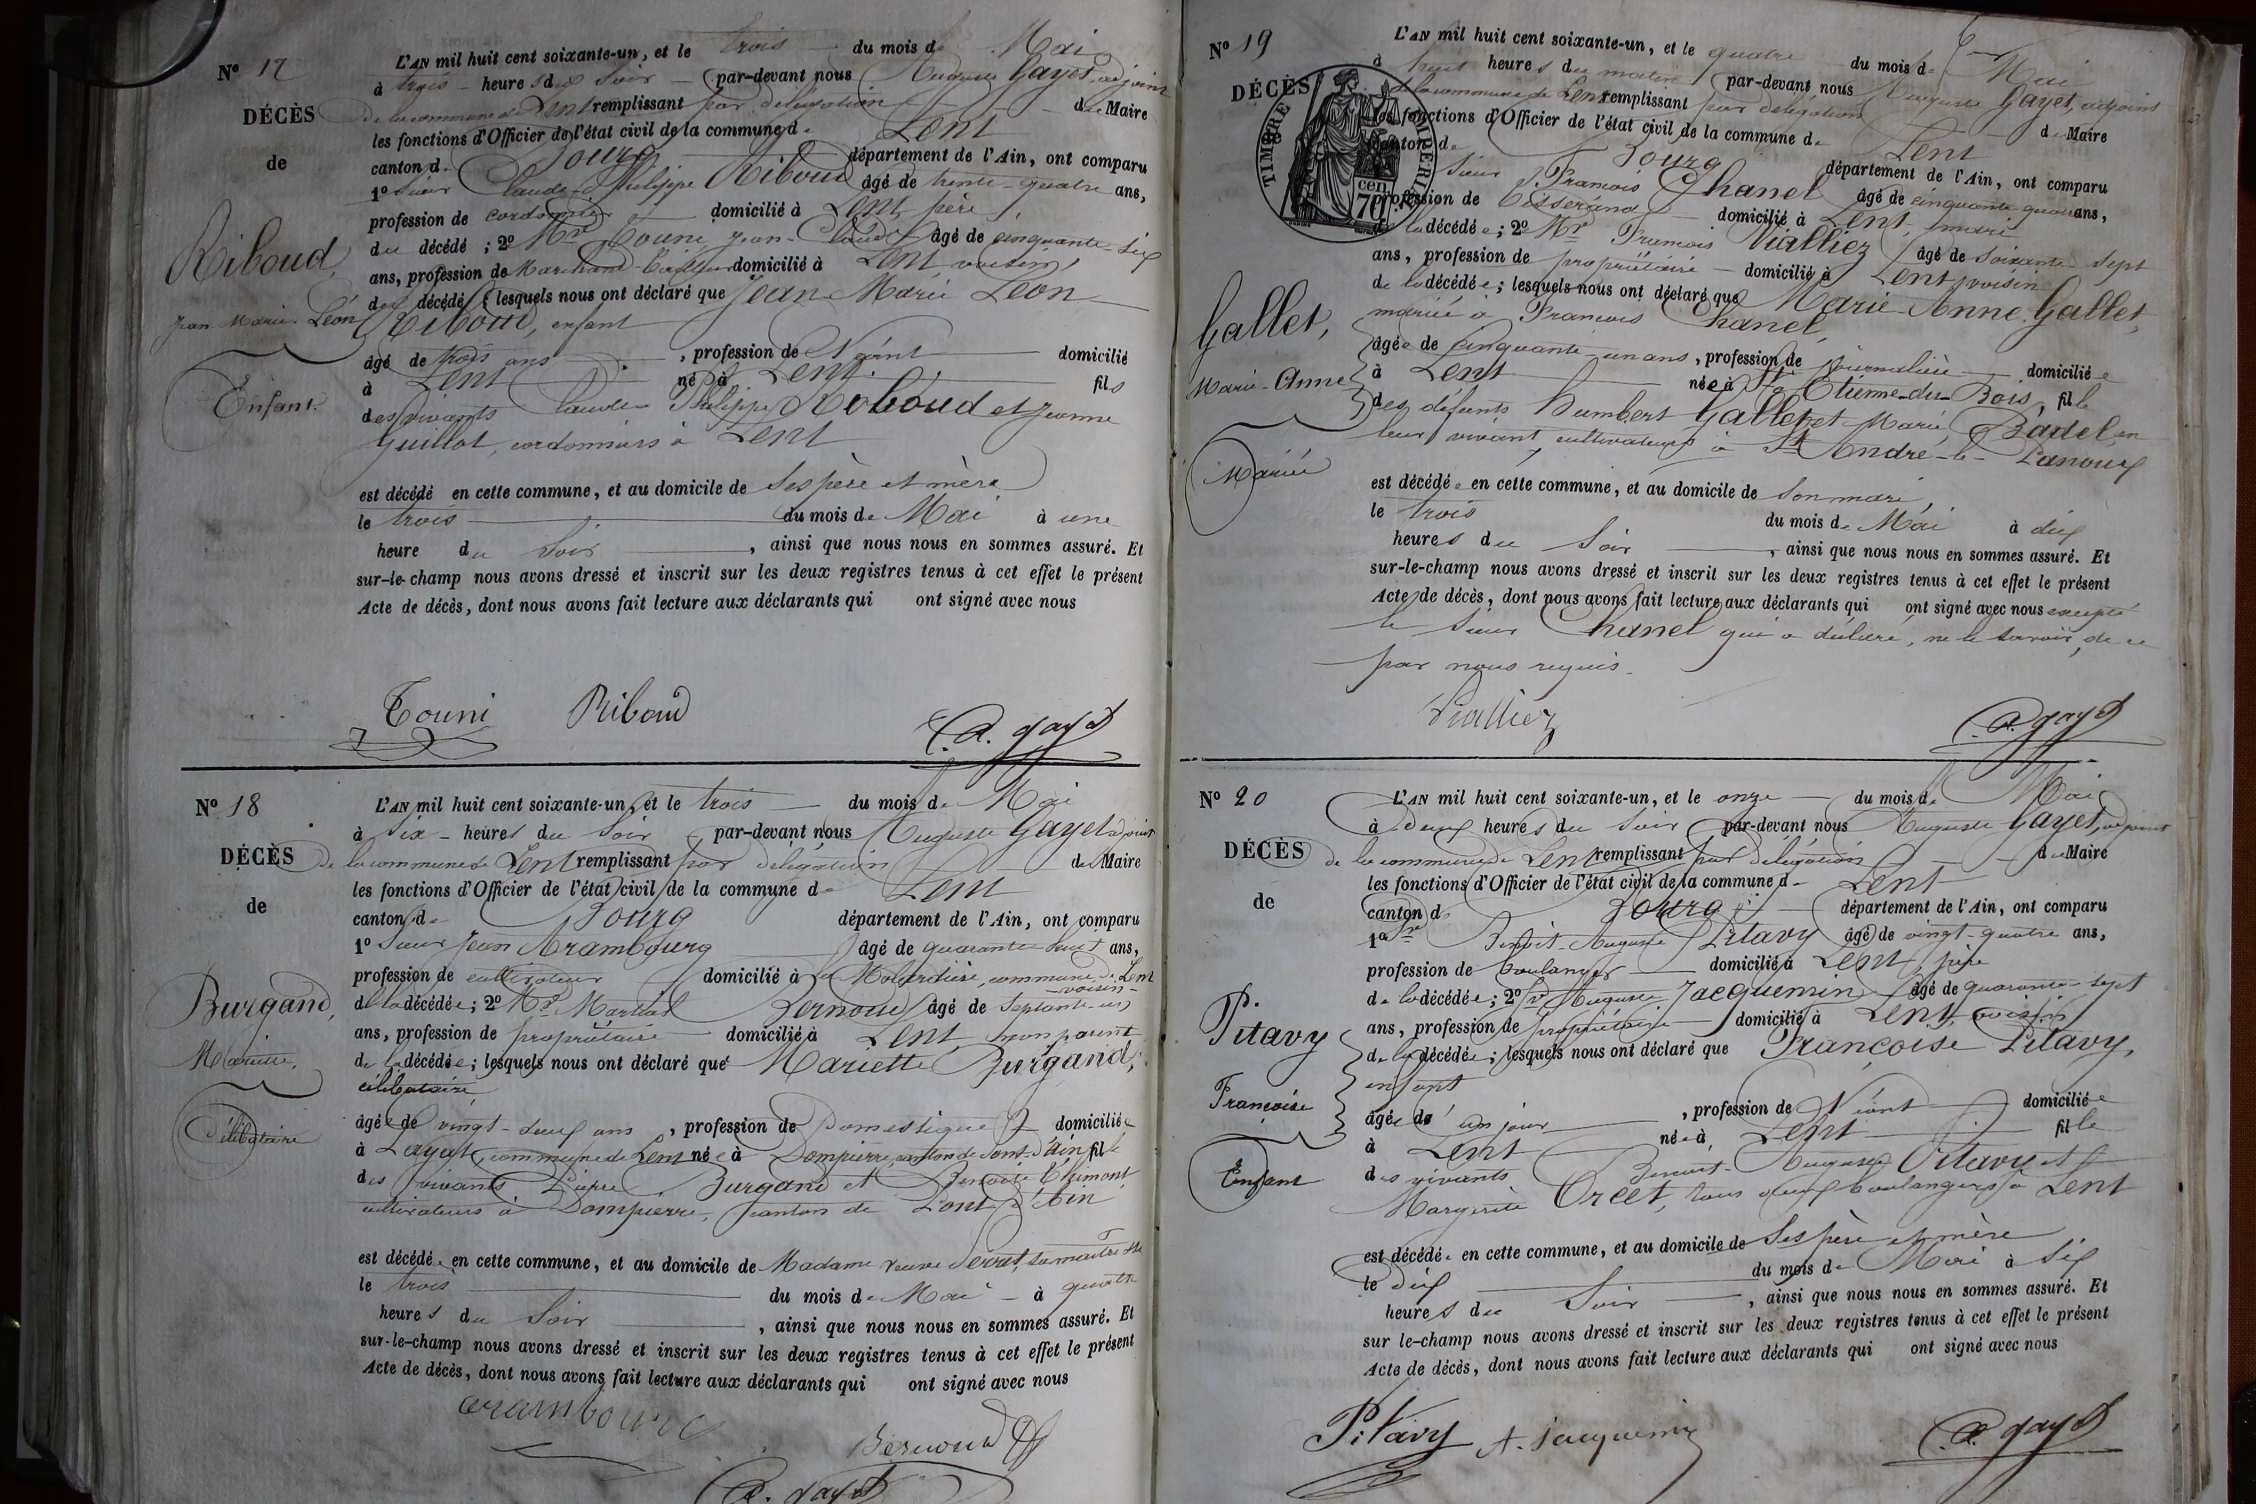 N° 17
DÉCÈS
de
Riboud,
Jean Marie Léon
Enfant.
L'AN mil huit cent soixante-un, et le trois du mois de Mai
à trois heures du Soir par-devant nous Auguste Gayet, adjoint
de la commune de Lent remplissant par délégation du Maire
les fonctions d'Officier de l'état civil de la commune de Lent
canton de Bourg département de l'Ain, ont comparu
1° Sieur Claude Philippe Riboud âgé de trente-quatre ans,
profession de cordonnier domicilié à Lent, père
du décédé; 2° Mr Touni, Jean-Claude âgé de cinquante-six
ans, profession de Marchand domicilié à Lent voisin
du décédé; lesquels nous ont déclaré que Jean Marie Léon
Riboud, enfant
âgé de trois ans, profession de Néant domicilié
à Lent né à Lent fils
des vivants Claude Philippe Riboud et Jeanne
Guillot, cordonniers à Lent
est décédé en cette commune, et au domicile de Ses père et mère
le trois du mois de Mai à une
heure du Soir, ainsi que nous nous en sommes assuré. Et
sur-le-champ nous avons dressé et inscrit sur les deux registres tenus à cet effet le présent
Acte de décès, dont nous avons fait lecture aux déclarants qui ont signé avec nous
Touni Riboud
A. gayet
N° 18
DÉCÈS
de
Burgand,
Mariette,
Célibataire
L'AN mil huit cent soixante-un, et le trois du mois de Mai
à Six heures du Soir par-devant nous Auguste Gayet adjoint
de la commune de Lent remplissant par délégation du Maire
les fonctions d'Officier de l'état civil de la commune de Lent
canton de Bourg département de l'Ain, ont comparu
1° Sieur Jean Arambourg âgé de quarante-huit ans,
profession de cultivateur domicilié à la commune de Lent
voisin
de la décédée; 2° Mr Martial Bernoud âgé de Septante-un
ans, profession de propriétaire domicilié à Lent non parent
de la décédée; lesquels nous ont déclaré que Mariette Burgand,
célibataire
âgée de vingt-deux ans, profession de Domestique domiciliée
à Layat, commune de Lent née à Dompierre, canton de Pont-d'Ain fille
des vivants Pierre Burgand et Benoite
cultivateurs à Dompierre, canton de Pont d'Ain
est décédée en cette commune, et au domicile de Madame veuve Servat, sa maîtresse
le trois du mois de Mai à quatre
heures du Soir, ainsi que nous nous en sommes assuré. Et
sur-le-champ nous avons dressé et inscrit sur les deux registres tenus à cet effet le présent
Acte de décès, dont nous avons fait lecture aux déclarants qui ont signé avec nous
arambourg
Bernoud
A. gayet
N° 19
DÉCÈS
TIMBRE IMPERIAL
70 cen
Gallet,
Marie-Anne
Mariée
L'AN mil huit cent soixante-un, et le quatre du mois de Mai
à huit heures du matin par-devant nous Auguste Gayet, adjoint
de la commune de Lent remplissant par délégation du Maire
les fonctions d'Officier de l'état civil de la commune de Lent
canton de Bourg département de l'Ain, ont comparu
Sieur François Chanel âgé de cinquante-quatre ans,
profession de Tisserand domicilié à Lent, mari
de la décédée; 2° Mr François Vialliez âgé de Soixante-Sept
ans, profession de propriétaire domicilié à Lent, voisin
de la décédée; lesquels nous ont déclaré que Marie-Anne Gallet,
mariée à François Chanel,
âgée de cinquante-un ans, profession de journalière domiciliée
à Lent née à St Etienne-du-Bois, fille
des défunts Humbert Gallet et Marie Badel, en
leur vivant cultivateurs à St André-le-Panoux
est décédée en cette commune, et au domicile de Son mari,
le trois du mois de Mai à dix
heures du Soir, ainsi que nous nous en sommes assuré. Et
sur-le-champ nous avons dressé et inscrit sur les deux registres tenus à cet effet le présent
Acte de décès, dont nous avons fait lecture aux déclarants qui ont signé avec nous excepté
le Sieur Chanel qui a déclaré, ne le savoir, de ce
par nous requis.
Vialliez
A. gayet
N° 20
DÉCÈS
de
P.
Pitavy
Françoise
Enfant
L'AN mil huit cent soixante-un, et le onze du mois de Mai
à Deux heures du Soir par-devant nous Auguste Gayet, adjoint
de la commune de Lent remplissant par délégation du Maire
les fonctions d'Officier de l'état civil de la commune de Lent
canton de Bourg département de l'Ain, ont comparu
1° Sr Benoit-Auguste Pitavy âgé de vingt-quatre ans,
profession de boulanger domicilié à Lent, père
de la décédée; 2° Sr Auguste Jacquemin âgé de quarante-sept
ans, profession de propriétaire domicilié à Lent, voisin
de la décédée; lesquels nous ont déclaré que Françoise Pitavy,
enfant
âgée de un jour, profession de Néant domiciliée
à Lent née à Lent fille
des vivants Benoit-Auguste Pitavy et
Margerite Orcet, tous deux boulangers à Lent
est décédée en cette commune, et au domicile de Ses père et mère
le dix du mois de Mai à Six
heures du Soir, ainsi que nous nous en sommes assuré. Et
sur le-champ nous avons dressé et inscrit sur les deux registres tenus à cet effet le présent
Acte de décès, dont nous avons fait lecture aux déclarants qui ont signé avec nous
Pitavy A. Jacquemin
A. gayet